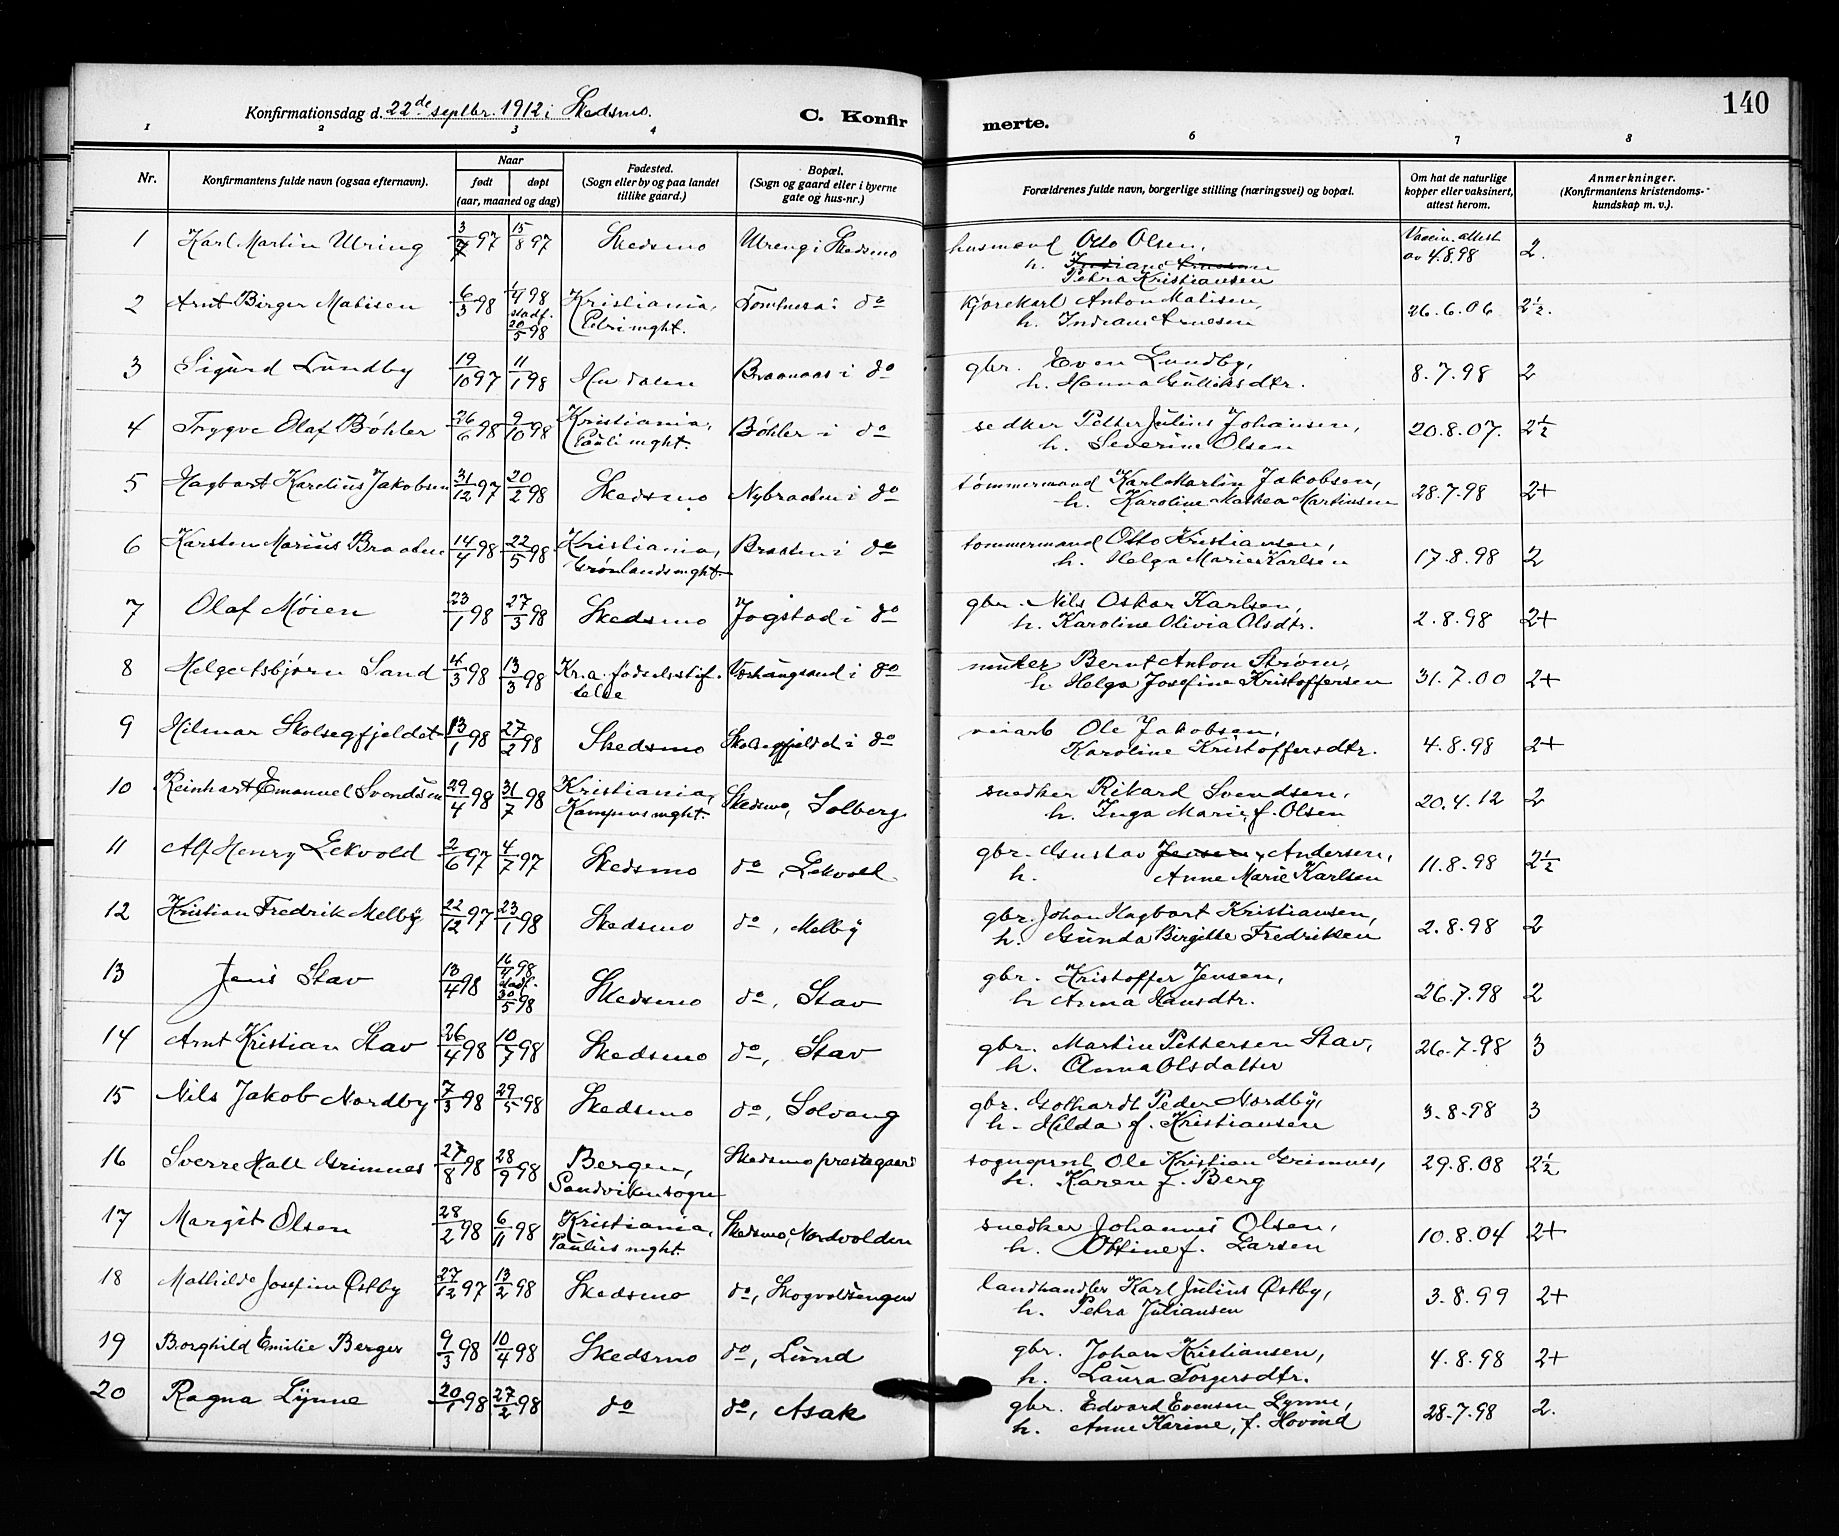 140
Konfirmationsdag d. 22de septbr. 1912 i Skedsmo.
C. Konfir
merte.
1 2 3 4 6 7 8
Nr.
Konfirmantens fulde navn (ogsaa efternavn).
Naar
født døpt
(aar, maaned og dag)
Fødested.
(Sogn eller by og paa landet
tillike gaard.)
Bopæl.
(Sogn og gaard eller i byerne
gate og hus-nr.)
Forældrenes fulde navn, borgerlige stilling (næringsvei) og bopæl.
Om hat de naturlige
kopper eller vaksinert,
attest herom.
Anmerkninger.
(Konfirmantens kristendoms-
kundskap m. v.).
1 Karl Martin Ulring 97 15/8 97 Skedsmo Ulreng i Skedsmo husmand Otto Olsen, Vaccin. attest
av 4.8.98 2.
h. Indiane Arnesen
Petra Kristiansen
2 Arnt Birger Matisen 6/3 98 1/4 98 stadf. 20/5 98 Kristiania, Petri mght. i do kjørekarl Anton Matisen, 26.6.06 2½.
h. Indiane Arnesen
3 Sigurd Lundby 19/10 97 11/1 98 Hurdalen Braanaas i do gbr. Even Lundby, 8.7.98 2
h. Hanna Gulliksdtr.
4 Trygve Olaf Bøhler 26/6 98 9/10 98 Kristiania, Pauli mght. Bøhler i do Petter Julius Johansen, 20.8.07. 2½
h. Severine Olsen
5 Hagbart Karelius Jakobsen 31/12 97 20/2 98 Skedsmo Nybraaten i do tømmermand Karl Martin Jakobsen, 28.7.98 2+
h. Karoline Mathea Martinsen
6 Karsten Marius Braaten 14/4 98 22/5 98 Kristiania, Grønlands mght. Braaten i do tømmermand Otto Kristiansen, 17.8.98 2
h. Helga Marie Karlsen
7 Olaf Møien 23/1 98 27/3 98 Skedsmo Jogstad i do gbr. Nils Oskar Karlsen, 2.8.98 2+
h. Karoline Olivia Olsdtr.
8 Helge Asbjørn Sand 4/3 98 13/3 98 Kr.a. fødselsstiftelse i do Bernt Anton Strøm, 31.7.00 2+
h. Helga Josefine Kristoffersen
9 Hilmar Skolsegfjeldet 13/1 98 27/2 98 Skedsmo Skolsegfjeldet i do veiarb Ole Jakobsen, 4.8.98 2+
Karoline Kristoffersdtr.
10 Reinhart Emanuel Svendsen 29/4 98 31/7 98 Kristiania, Kampens mght. Skedsmo, Solberg snedker Rikard Svendsen, 20.4.12 2
h. Inga Marie, f. Olsen
11 Alf Henry Lekvold 2/6 97 4/7 97 Skedsmo do, Lekvold gbr. Gustav Jensen, Andersen, 11.8.98 2½
h. Anne Marie Karlsen
12 Kristian Fredrik Melby 22/12 97 23/1 98 Skedsmo do, Melby gbr. Johan Hagbart Kristiansen, 2.8.98 2
h. Gunda Birgitte Fredriksen
13 Jens Stav 13/4 98 16/4 98 stadf. 30/5 98 Skedsmo do, Stav gbr. Kristoffer Jensen, 26.7.98 2
h. Anna Hansdtr.
14 Arnt Kristian Stav 26/4 98 10/7 98 Skedsmo do, Stav gbr. Martin Pettersen Stav, 26.7.98 3
h. Anna Olsdatter
15 Nils Jakob Nordby 7/3 98 29/5 98 Skedsmo do, Solvang gbr. Gothardt Peder Nordby, 3.8.98 3
h. Hilda f. Kristiansen
16 Sverre Hall Grimnes 27/8 98 28/9 98 Bergen, Sandviken sogn Skedsmo prestegaard sogneprest Ole Kristian Grimnes, 29.8.08 2½
h. Karen f. Berg
17 Margit Olsen 28/2 98 6/11 98 Kristiania, Paulus mght. Skedsmo, Nordvolden snedker Johannes Olsen, 10.8.04 2+
h. Ottine f. Larsen
18 Mathilde Josefine Østby 27/12 97 13/2 98 Skedsmo do, Skogvoldsengen landhandler Karl Julius Østby, 3.8.99 2+
h. Petra Juliansen
19 Borghild Emilie Berger 9/3 98 10/4 98 Skedsmo do, Lund gbr. Johan Kristiansen, 4.8.98 2+
h. Laura Torgersdtr.
20 Ragna Lynne 20/1 98 27/2 98 do do, Asak gbr. Edvard Evensen Lynne, 28.7.98 2.
h. Anne Karine, f. Hovind